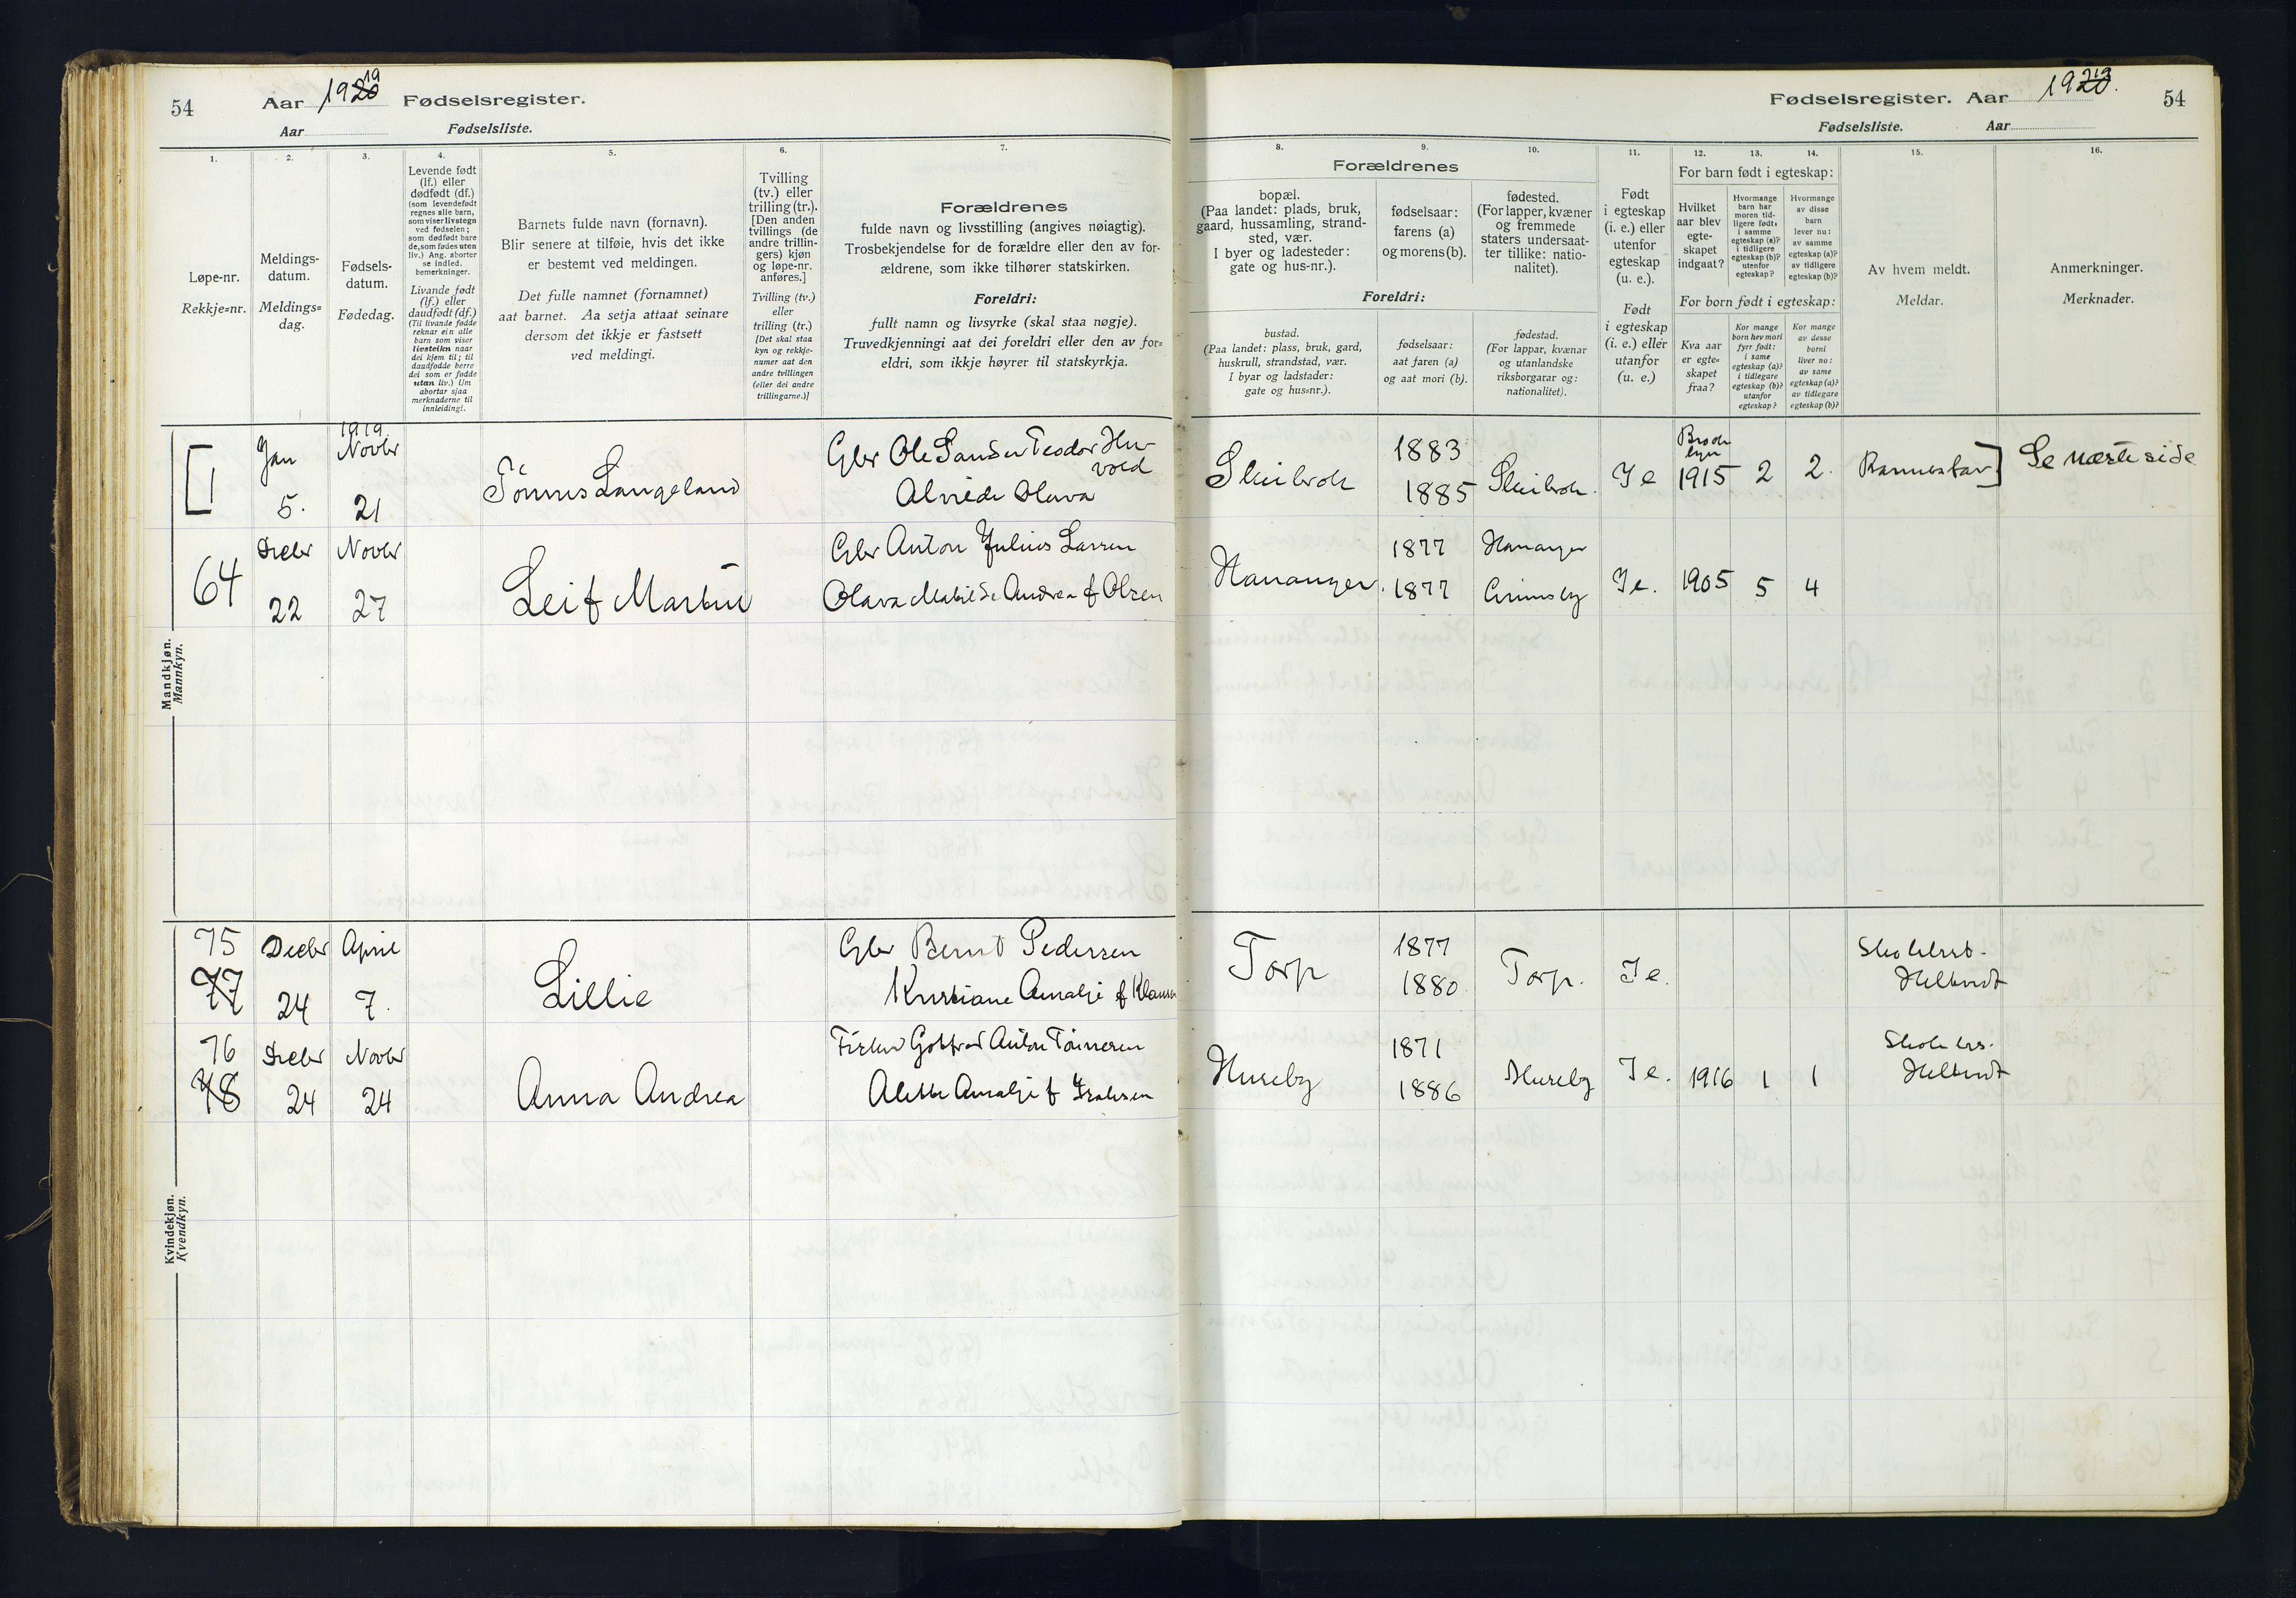 54
Aar 1920 19 Fødselsregister.
Aar Fødselsliste.
Fødselsregister. Aar 1920 19.
54
Fødselsliste. Aar
1.
Løpe-nr.
Rekkje=nr.
2.
Meldings-
datum.
Meldings=
dag.
3.
Fødsels-
datum.
Fødedag.
4.
Levende født
(lf.) eller
dødfødt (df.)
(som levendefødt
regnes alle barn,
som viser livstegn
ved fødselen;
som dødfødt bare
de, som fødes uten
liv.) Ang. aborter
se indled.
bemerkninger.
Livande født
(lf.) eller
daudfødt (df.)
(Til livande fødde
reknar ein alle
barn som viser
livsteikn naar
dei kjem til; til
daudfødde berre
dei som er fødde
utan liv.) Um
abortar sjaa
merknaderne til
innleidingi.
5.
Barnets fulde navn (fornavn).
Blir senere at tilføie, hvis det ikke
er bestemt ved meldingen.
Det fulle namnet (fornamnet)
aat barnet. Aa setja attaat seinare
dersom det ikkje er fastsett
ved meldingi.
6.
Tvilling
(tv.) eller
trilling (tr.).
[Den anden
tvillings (de
andre trillin-
gers) kjøn
og løpe-nr.
anføres.]
Tvilling (tv.)
eller
trilling (tr.)
[Det skal staa
kyn og rekkje-
numer aat den
andre tvillingen
(eller dei andre
trillingarne.)]
7.
Forældrenes
fulde navn og livsstilling (angives nøiagtig).
Trosbekjendelse for de forældre eller den av for-
ældrene, som ikke tilhører statskirken.
Foreldri:
fullt namn og livsyrke (skal staa nøgje).
Truvedkjenningi aat dei foreldri eller den av for=
eldri, som ikkje høyrer til statskyrkja.
Forældrenes
8.
bopæl.
(Paa landet: plads, bruk,
gaard, hussamling, strand-
sted, vær.
I byer og ladesteder:
gate og hus-nr.).
9.
fødselsaar:
farens (a)
og morens (b).
10.
fødested.
(For lapper, kvæner
og fremmede
staters undersaat-
ter tillike: natio-
nalitet).
Foreldri:
bustad.
(Paa landet: plass, bruk, gard,
huskrull, strandstad, vær.
I byar og ladstader:
gate og hus=nr.).
fødselsaar:
aat faren (a)
og aat mori (b).
fødestad.
(For lappar, kvænar
og utanlandske
riksborgarar og:
nationalitet).
11.
Født
i egteskap
(i. e.) eller
utenfor
egteskap
(u. e.).
Født
i egteskap
(i. e.) eller
utanfor
egteskap
(u. e.)
For barn født i egteskap:
12.
Hvilket
aar blev
egte-
skapet
indgaat?
13.
Hvormange
barn har
moren tid-
ligere født:
i samme
egteskap (a)?
i tidligere
egteskap (b)?
utenfor
egteskap?
14.
Hvormange
av disse
barn
lever nu:
av samme
egteskap (a)?
av tidligere
egteskap (b)?
For born født i egteskap:
Kva aar
er egte=
skapet
fraa?
Kor mange
born hev mori
fyrr født:
i same
egteskap (a)?
i tidlegare
egteskap (b)?
utanfor
egteskap?
Kor mange
av desse
borni
liver no:
av same
egteskap (a)?
av tidlegare
egteskap (b)?
15.
Av hvem meldt.
Meldar.
16.
Anmerkninger.
Merknader.
Mandkjøn.
Mannkyn.
[1 Jan 5. 1919. Novbr 21
Tønnes Langeland
Gbr Ole Teodor
Olava
1883
1885
I e 1915 2 2.
] Se næste side
64 Decbr 22 Novbr 27
Leif Martin
Gbr Anton Julius Larsen
Olava Matilde Andrea f Olsen
Hananger. 1877 Hananger
1877 Grimsby
I e. 1905 5 4
Kvindekjøn.
Kvendkyn.
75 77 Decbr 24 April 7
Lillie
Gbr Bernt Pedersen
Kristiane Amalje f Klausen
Torp 1877
1880 Torp. I e.
Helvendt
76 78 Decbr 24 Novbr 24
Anna Andrea
Gotfred Anton Tønnesen
Alette Amalje f
Huseby 1871
1886 Huseby I e. 1916 1 1
Helvendt